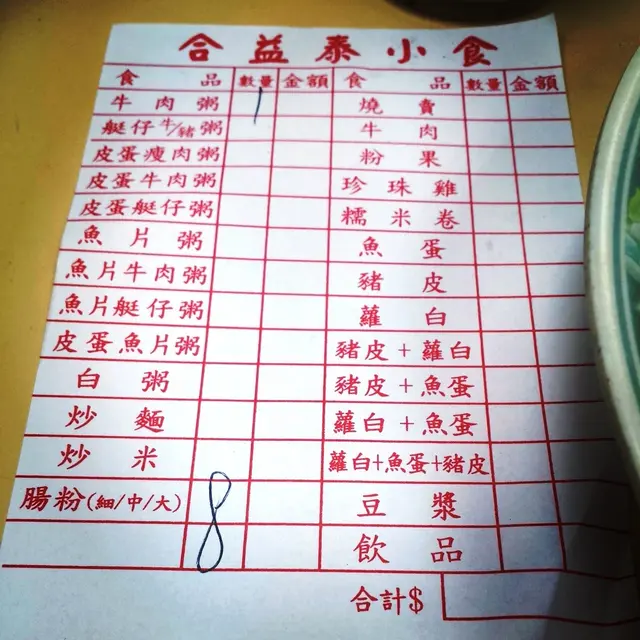 合益泰小食
食品 數量 金額 食品 數量 金額
牛肉粥 1 燒賣
艇仔牛/豬粥 牛肉
皮蛋瘦肉粥 粉果
皮蛋牛肉粥 珍珠雞
皮蛋艇仔粥 糯米卷
魚片粥 魚蛋
魚片牛肉粥 豬皮
魚片艇仔粥 蘿白
皮蛋魚片粥 豬皮+蘿白
白粥 豬皮+魚蛋
炒麵 蘿白+魚蛋
炒米 蘿白+魚蛋+豬皮
腸粉(細/中/大) 8 豆漿
飲品
合計$